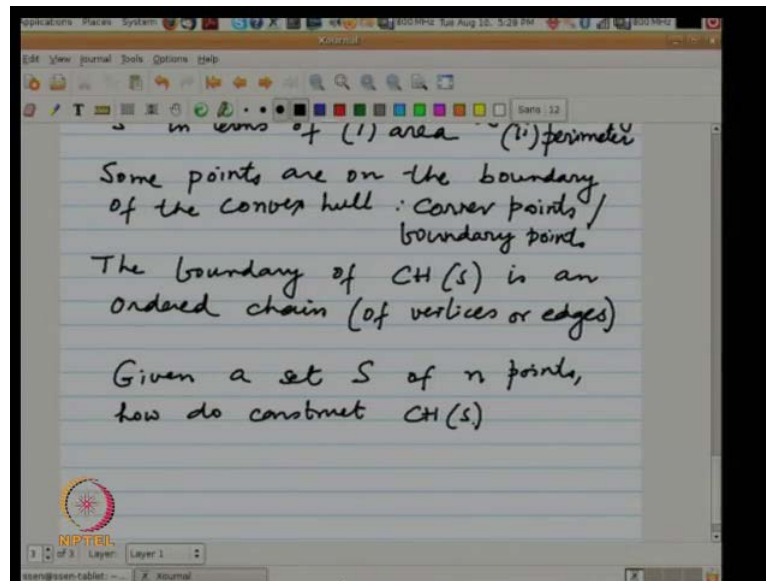 Applications Places System 800 MHz Tue Aug 10, 5:28 PM 800 MHz
Xournal
Edit View Journal Tools Options Help
Sans 12
S in terms of (i) area (ii) perimeter
Some points are on the boundary
of the convex hull : corner points /
boundary points
The boundary of CH(S) is an
ordered chain (of vertices or edges)
Given a set S of n points,
how do construct CH(S)
NPTEL
3 of 3 Layer: Layer 1
ssen@ssen-tablet: ~ Xournal